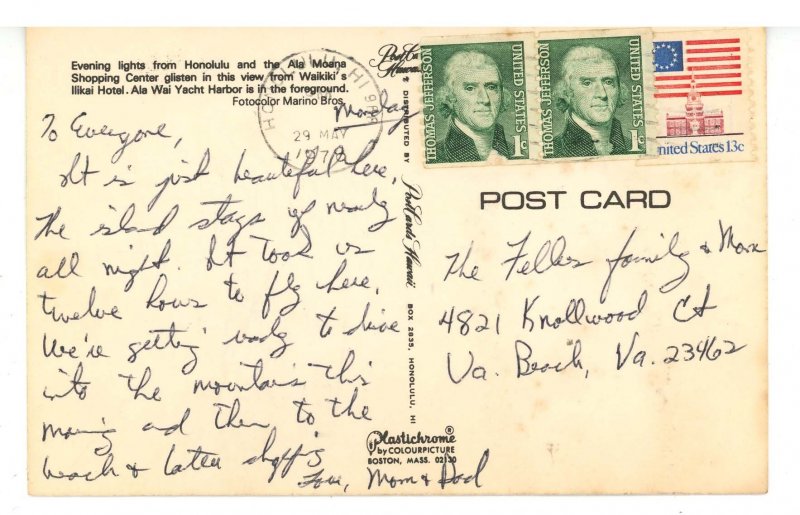 Evening lights from Honolulu and the Ala Moana
Shopping Center glisten in this view from Waikiki's
Ilikai Hotel. Ala Wai Yacht Harbor is in the foreground.
Fotocolor Marino Bros.
Monday
To Everyone,
It is just beautiful here.
The island stays up nearly
all night. It took us
twelve hours to fly here.
We're getting ready to drive
into the mountains this
morning and then to the
beach & later shopp'g
Love, Mom & Dad
HONOLULU, HI
29 MAY
1978
DISTRIBUTED BY Post Cards Hawaii BOX 2835, HONOLULU, HI
Plastichrome®
by COLOURPICTURE
BOSTON, MASS. 02130
THOMAS JEFFERSON
UNITED STATES
1c
THOMAS JEFFERSON
UNITED STATES
1c
United States 13c
POST CARD
The Feller family & Mom
4821 Knollwood Ct
Va. Beach, Va. 23462